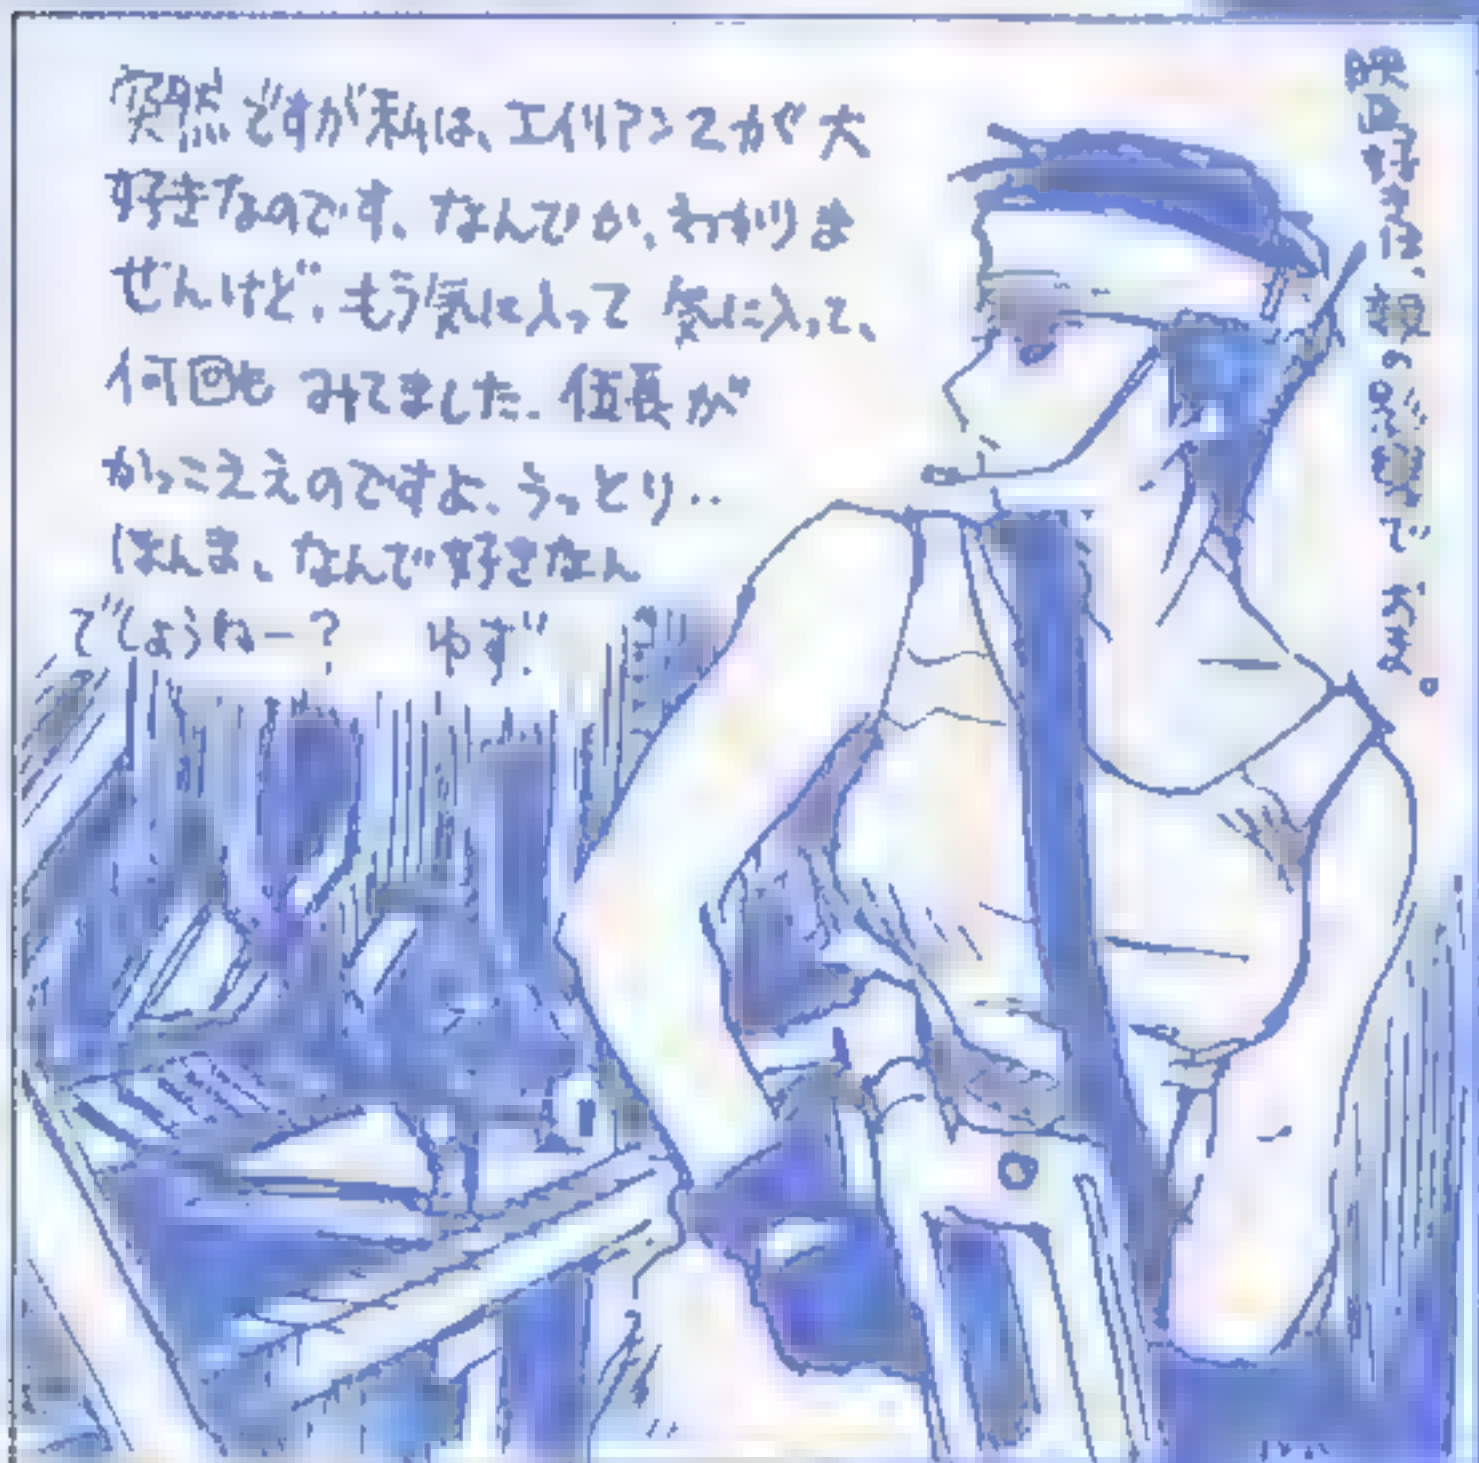 突然ですが私は、エイリアン2が大
好きなのです、なんでか、わかりま
せんけど、もう気に入って 気に入って、
何回もみてました。伍長が
かっこええのですよ、うっとり‥
ほんま、なんで好きなん
でしょうねー? ゆず
映画好きは、親の影響で すよ。